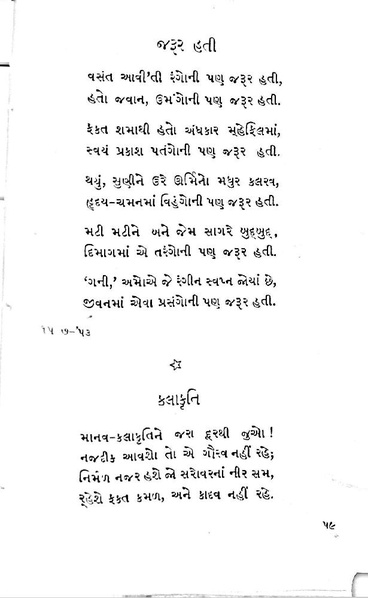 જરૂર હતી
વસંત આવી'તી રંગોની પણ જરૂર હતી,
હતો જવાન, ઉમંગોની પણ જરૂર હતી.
ફકત શમાથી હતો અંધકાર મ્હેફિલમાં,
સ્વયં પ્રકાશ પતંગોની પણ જરૂર હતી.
થયું, સુણીને ઉરે ઊર્મિનો મધુર કલરવ,
હૃદય-ચમનમાં વિહંગોની પણ જરૂર હતી.
મટી મટીને બને જેમ સાગરે બુદ્બુદ્,
દિમાગમાં એ તરંગોની પણ જરૂર હતી.
'ગની,' અમોએ જે રંગીન સ્વપ્ન જોયાં છે,
જીવનમાં એવા પ્રસંગોની પણ જરૂર હતી.
૧૫ ૭-'૫૩
કલાકૃતિ
માનવ-કલાકૃતિને જરા દૂરથી જુઓ !
નજદીક આવશો તો એ ગૌરવ નહીં રહે;
નિર્મળ નજર હશે જો સરોવરનાં નીર સમ,
ર્‌હેશે ફકત કમળ, અને કાદવ નહીં રહે.
૫૯